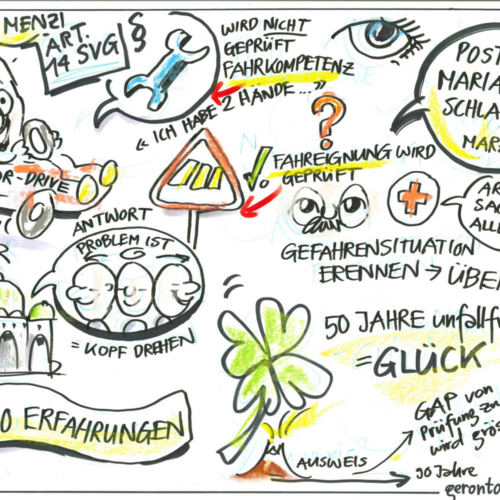 MENZI
ART.
14 SVG
§
§
WIRD NICHT
GEPRÜFT
FAHRKOMPETENZ
« ICH HABE 2 HÄNDE...»
POST
MARIA
SCHLA
MAR
?
FAHREIGNUNG WIRD
GEPRÜFT
OR-DRIVE
ANTWORT
PROBLEM IST
= KOPF DREHEN
AR
SAG
ALLE
GEFAHRENSITUATION
ERENNEN → ÜBER
50 JAHRE unfallf
= GLÜCK
O ERFAHRUNGEN
GAP von
Prüfung zu
wird grös
AUSWEIS
90 Jahre
geronto